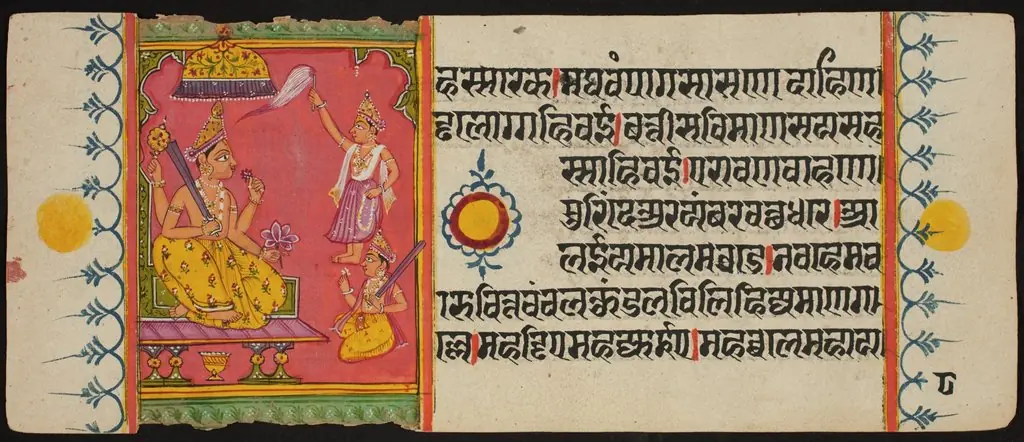 हस्सक्खे।मघवंपागसासणे दाहिण
ड्ढलोगाहिवई।बत्तीसविमाणसयसह
स्साहिवई।एरावणवाहणे
सुरिंदेअरयंबरवत्थधरे।आ
लईयमालमउडे।नवहेमच
ारुचित्तचंचलकुंडलविलिहिज्जमाणग
ल्ले।महड्ढिएमहज्जुईए।महब्बलेमहाय
८